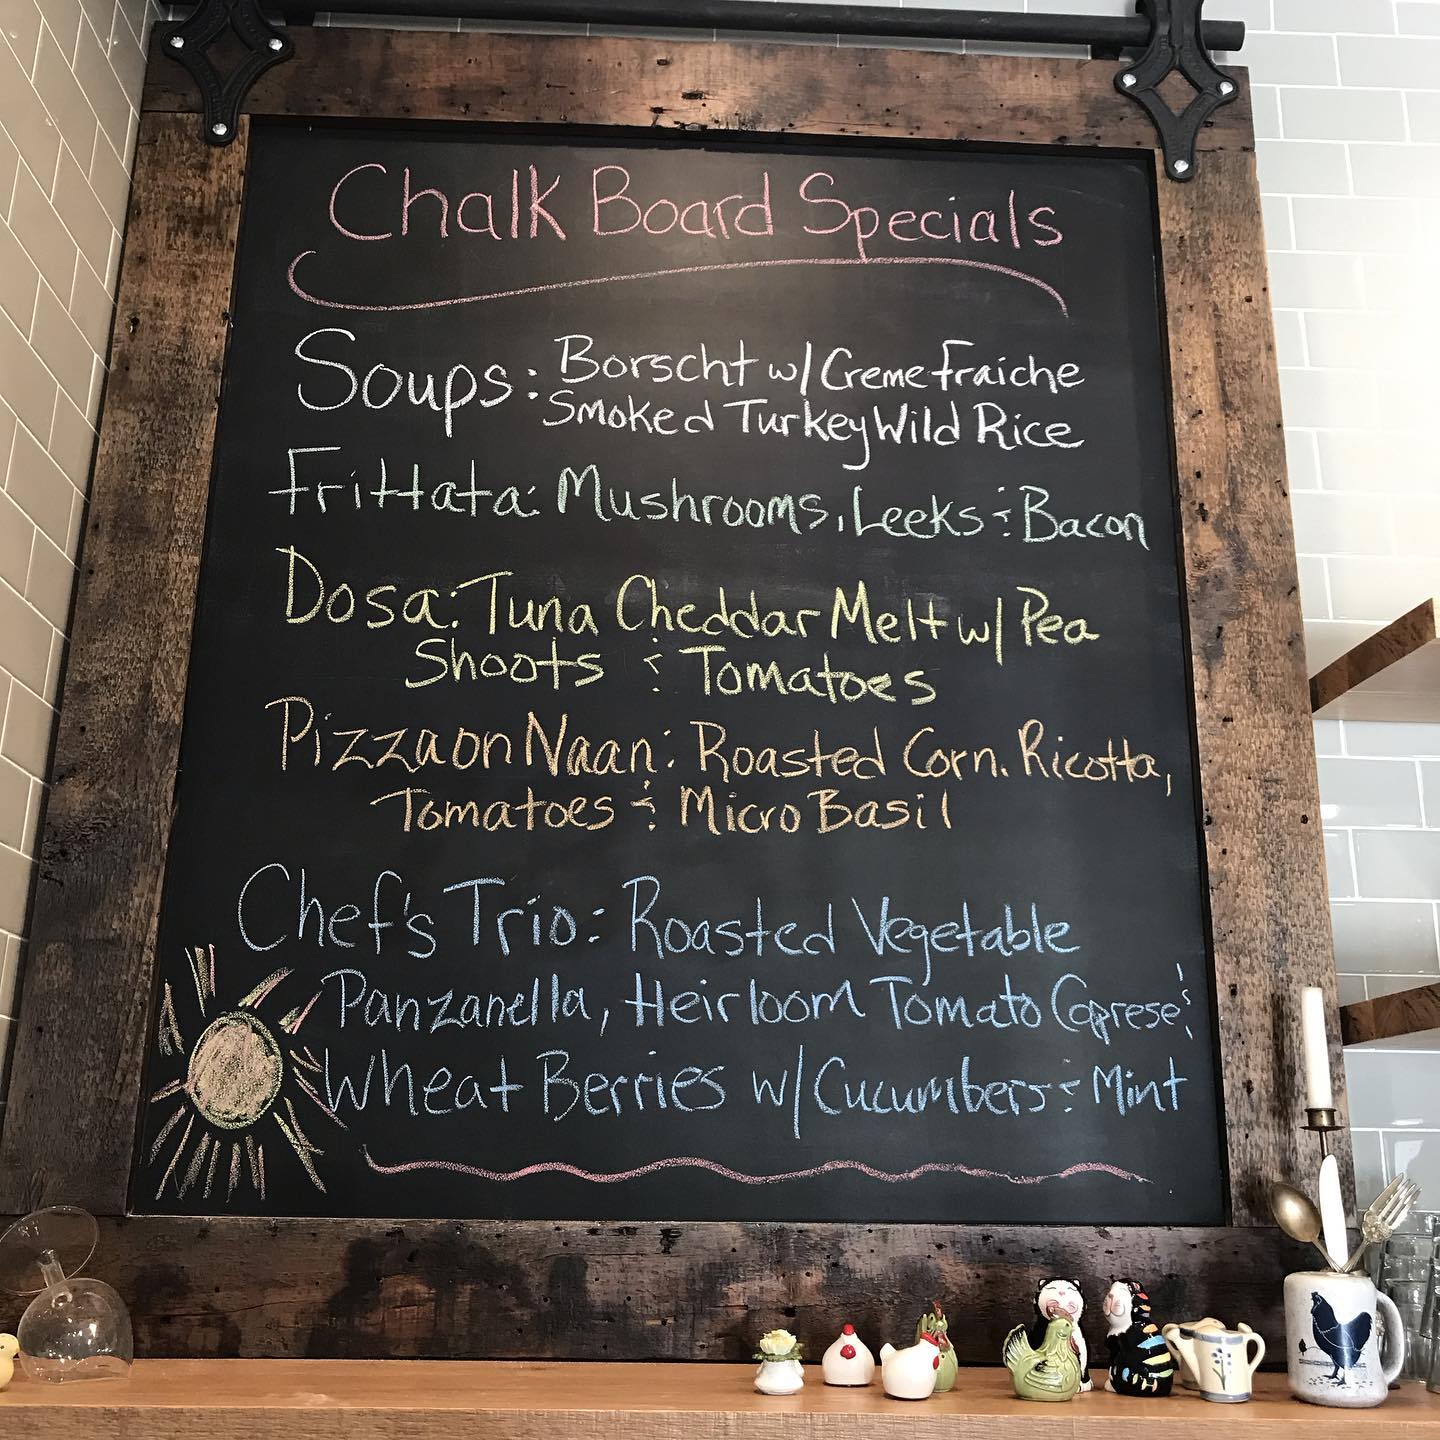 Chalk Board Specials
Soups: Borscht w/ Creme Fraiche
Smoked Turkey Wild Rice
Frittata: Mushrooms, Leeks & Bacon
Dosa: Tuna Cheddar Melt w/ Pea
Shoots & Tomatoes
Pizza on Naan: Roasted Corn. Ricotta,
Tomatoes & Micro Basil
Chef's Trio: Roasted Vegetable
Panzanella, Heirloom Tomato Caprese &
Wheat Berries w/ Cucumbers & Mint